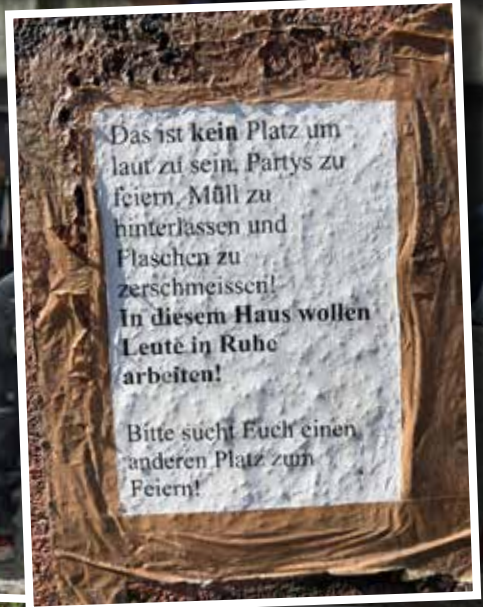 Das ist kein Platz um
laut zu sein, Partys zu
feiern, Müll zu
hinterlassen und
Flaschen zu
zerschmeissen!
In diesem Haus wollen
Leute in Ruhe
arbeiten!
Bitte sucht Euch einen
anderen Platz zum
Feiern!